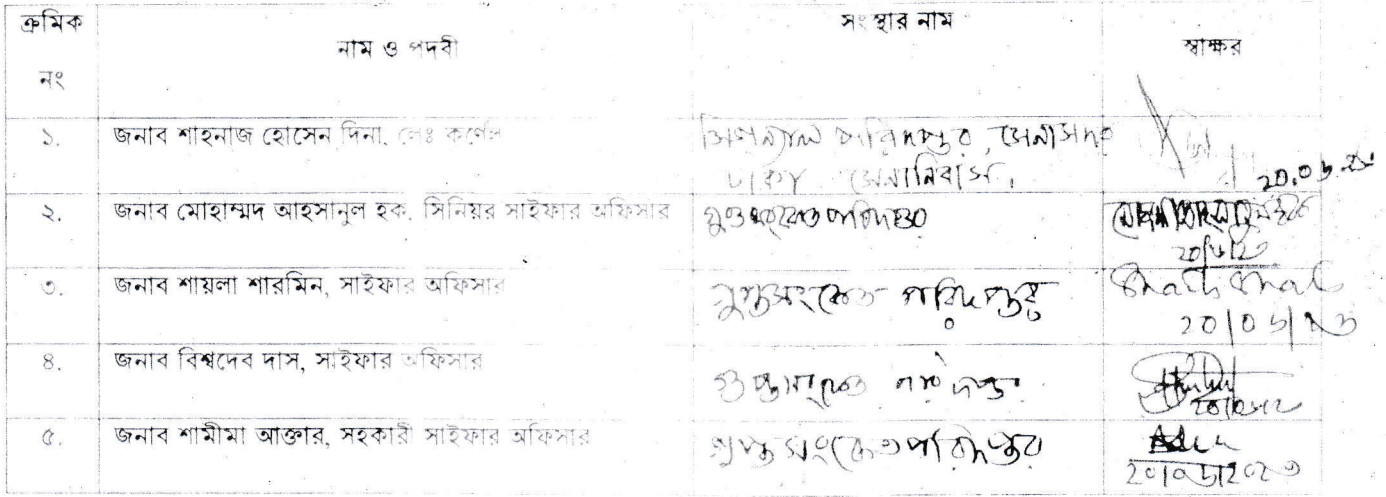 ক্রমিক নং	নাম ও পদবী	সংস্থার নাম	স্বাক্ষর
১.	জনাব শাহনাজ হোসেন দিনা, লেঃ কর্ণেল	সিগন্যাল পরিদপ্তর, সেনাসদর
ঢাকা সেনানিবাস।
২.	জনাব মোহাম্মদ আহসানুল হক, সিনিয়র সাইফার অফিসার	গুপ্তসংকেত পরিদপ্তর
৩.	জনাব শায়লা শারমিন, সাইফার অফিসার	গুপ্তসংকেত পরিদপ্তর
৪.	জনাব বিশ্বদেব দাস, সাইফার অফিসার	গুপ্তসংকেত পরিদপ্তর
৫.	জনাব শামীমা আক্তার, সহকারী সাইফার অফিসার	গুপ্তসংকেত পরিদপ্তর
২০/০৬/২০২৩